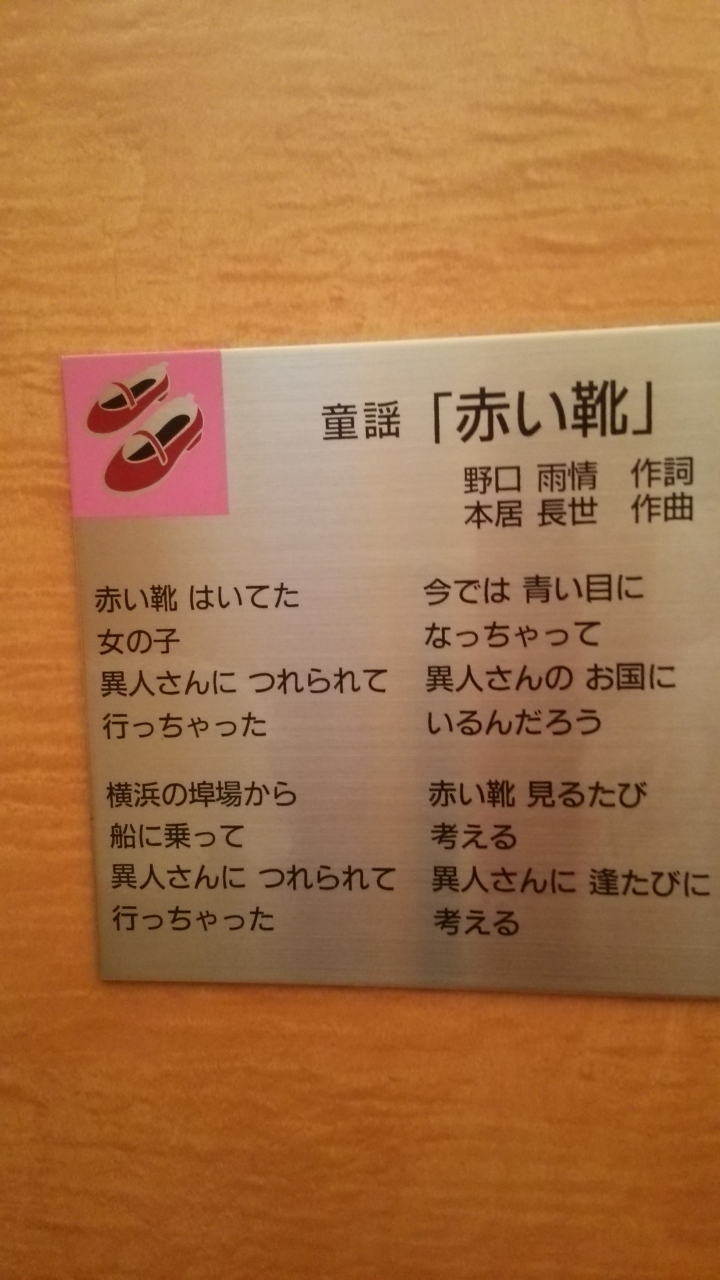 童謡「赤い靴」
野口 雨情 作詞
本居 長世 作曲
赤い靴 はいてた
女の子
異人さんに つれられて
行っちゃった
横浜の埠場から
船に乗って
異人さんに つれられて
行っちゃった
今では 青い目に
なっちゃって
異人さんの お国に
いるんだろう
赤い靴 見るたび
考える
異人さんに 逢たびに
考える